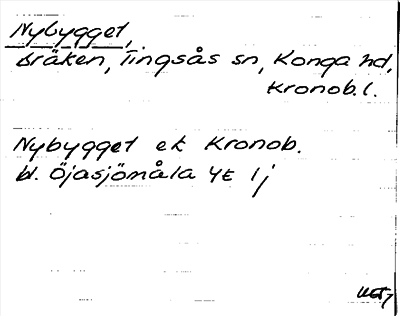 Nybygget,
Bräken, Tingsås sn, Konga hd,
Kronob. l.
Nybygget ek Kronob.
bl. Öjasjömåla 4E 1j